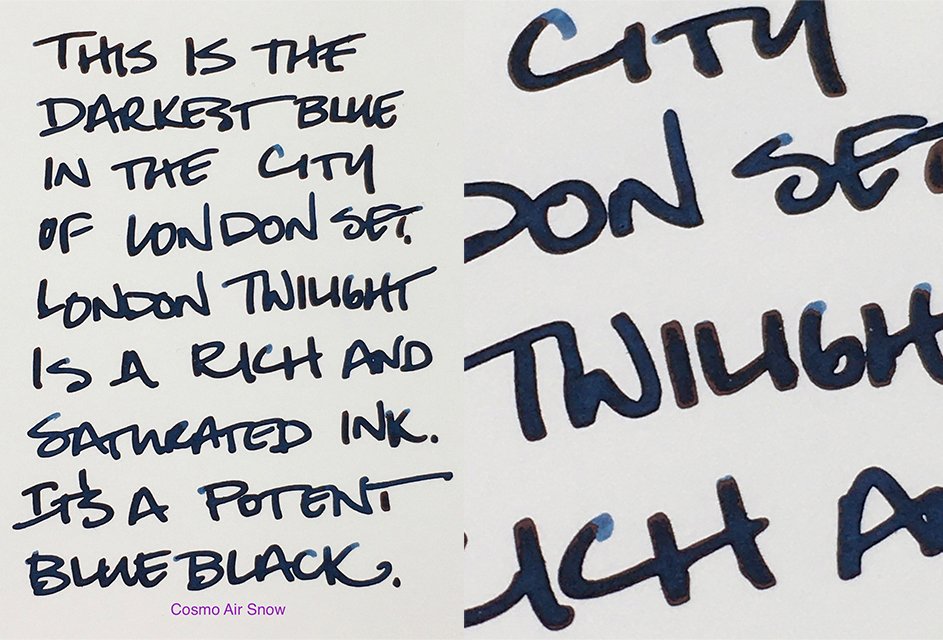 THIS IS THE
DARKEST BLUE
IN THE CITY
OF LONDON SET.
LONDON TWILIGHT
IS A RICH AND
SATURATED INK.
IT'S A POTENT
BLUE BLACK.
Cosmo Air Snow
CITY
DON SET
TWILIGH
ICH A